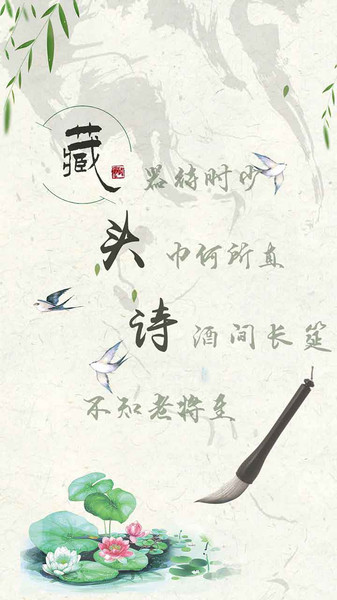 藏器待时吵
头巾何所直
诗酒间长筵
不知老将至